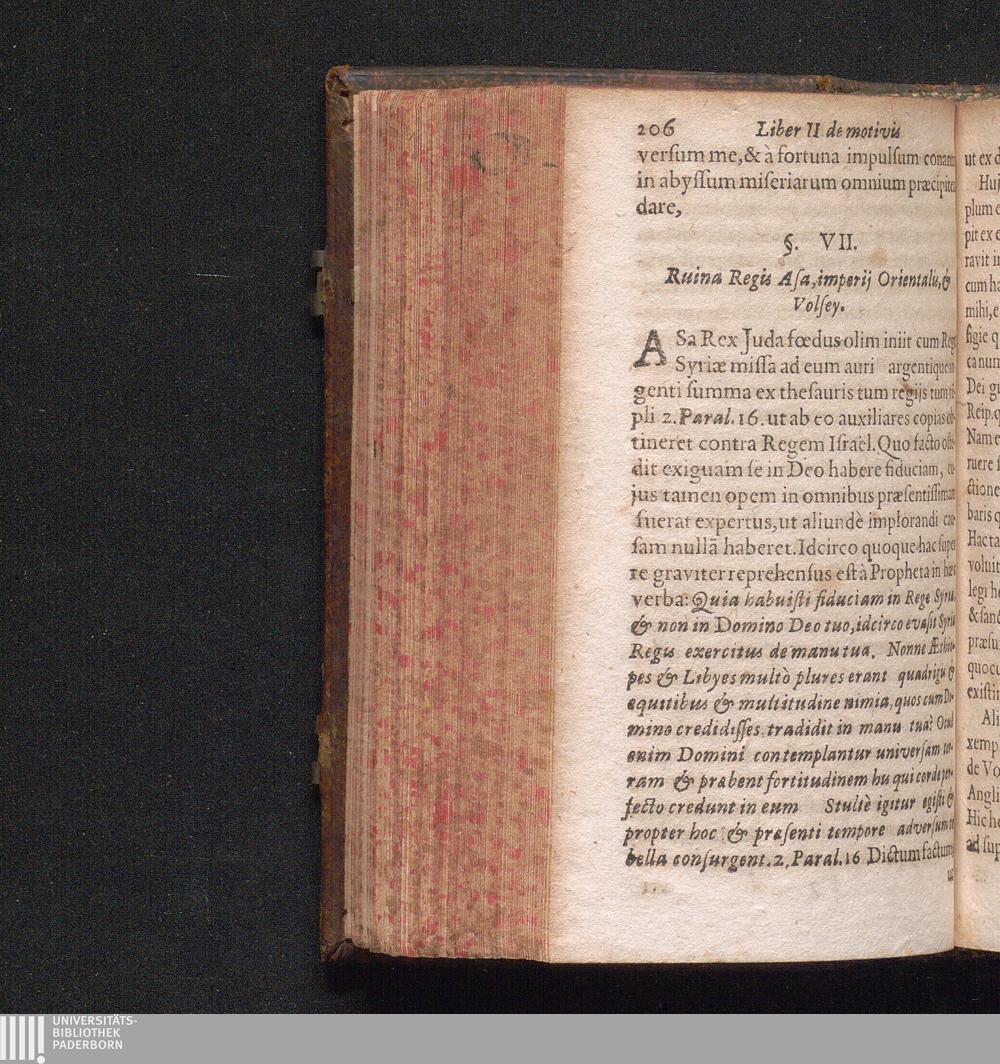 206 Liber II de motivis
versum me, & à fortuna impulsum
in abyssum miseriarum omnium
dare,
§. VII.
Ruina Regis Asa, imperij Orientalis, &
Volsey.
ASa Rex Juda fœdus olim iniit cum
Syriæ missa ad eum auri argentique
genti summa ex thesauris tum regijs tum
pli 2. Paral. 16. ut ab eo auxiliares copias
tineret contra Regem Israël. Quo facto
dit exiguam se in Deo habere fiduciam,
jus tamen opem in omnibus
fuerat expertus, ut aliundè implorandi
sam nullã haberet. Idcirco quoque hac
re graviter reprehensus est à Propheta in
verba: Quia habuisti fiduciam in Rege
& non in Domino Deo tuo, idcirco evasit
Regis exercitus de manu tua. Nonne
pes & Libyes multò plures erant quadrigis &
equitibus & multitudine nimia, quos cum
mino credidisses, tradidit in manu tua?
enim Domini contemplantur universam
ram & præbent fortitudinem his qui corde
fecto credunt in eum Stultè igitur egisti &
propter hoc & præsenti tempore
bella consurgent. 2, Paral. 16 Dictum factum
ut ex
cum
mihi, e
figie q
Dei
Reip.
ruere
ctione
baris q
voluit
legi
quocu
Ali
xemp
de
Angli
Hic
ad sup
UNIVERSITÄTS-
BIBLIOTHEK
PADERBORN